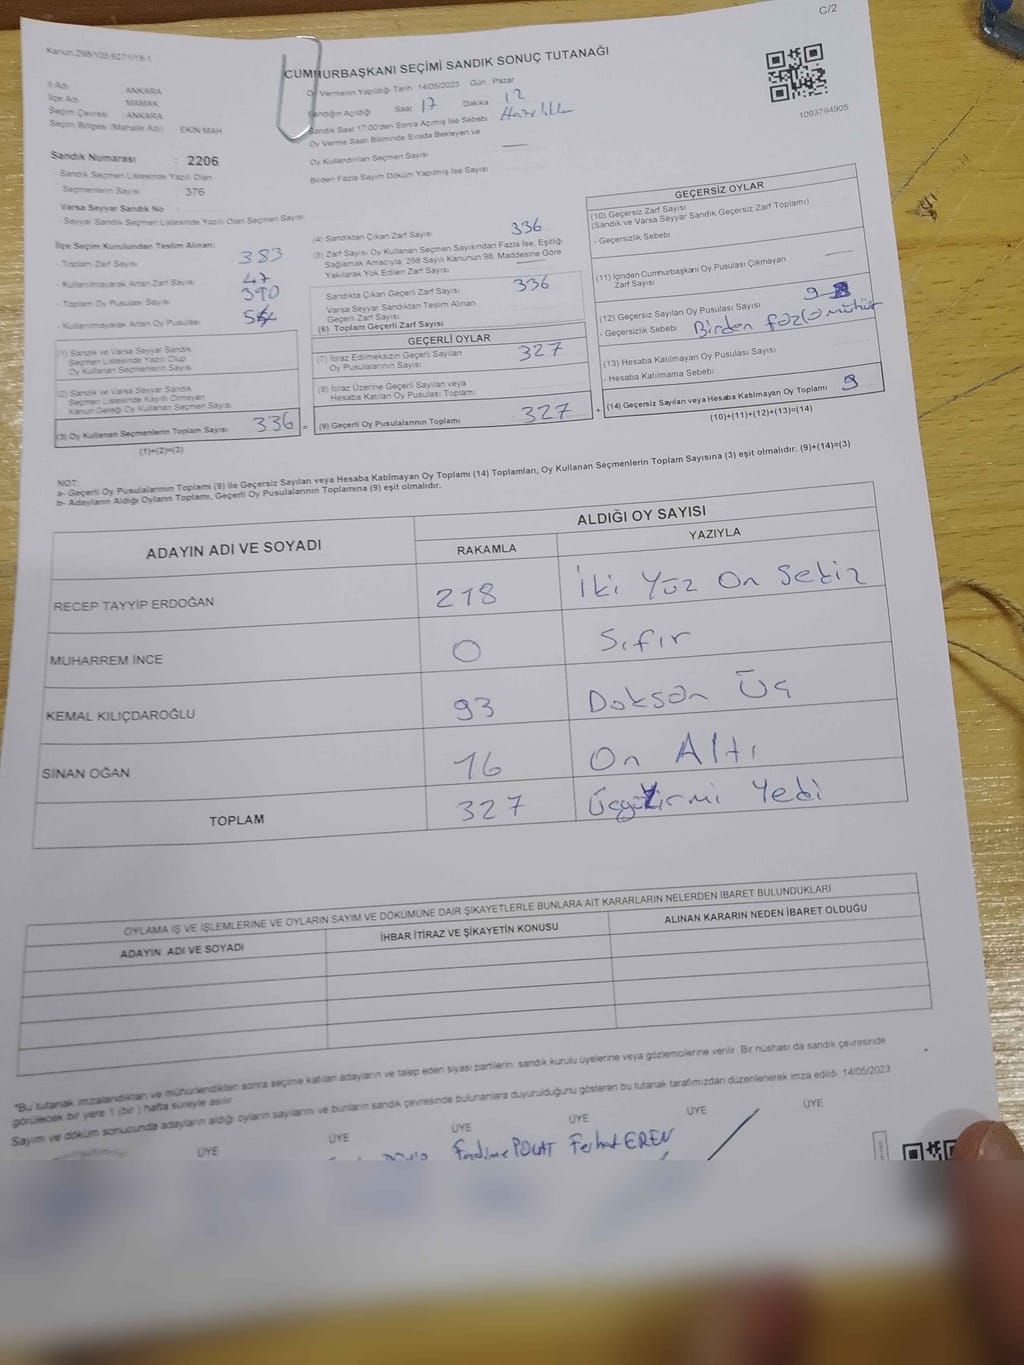 C/2
Kanun:298/105,6271/18-1
CUMHURBAŞKANI SEÇİMİ SANDIK SONUÇ TUTANAĞI
İl Adı : ANKARA
İlçe Adı : MAMAK
Seçim Çevresi : ANKARA
Seçim Bölgesi (Mahalle Adı) : EKİN MAH
Sandık Numarası : 2206
- Sandık Seçmen Listesinde Yazılı Olan
Seçmenlerin Sayısı 376
Varsa Seyyar Sandık No :
- Seyyar Sandık Seçmen Listesinde Yazılı Olan Seçmen Sayısı
Oy Vermenin Yapıldığı Tarih 14/05/2023 Gün Pazar
Sandığın Açıldığı Saat 17 Dakika 12
Sandık Saat 17:00'den Sonra Açılmış İse Sebebi Hazırlık
Oy Verme Saati Bitiminde Sırada Bekleyen ve
Oy Kullandırılan Seçmen Sayısı —
Birden Fazla Sayım Döküm Yapılmış İse Sayısı
1093794905
İlçe Seçim Kurulundan Teslim Alınan:
- Toplam Zarf Sayısı 383
- Kullanılmayarak Artan Zarf Sayısı 47
- Toplam Oy Pusulası Sayısı 390
- Kullanılmayarak Artan Oy Pusulası
(1) Sandık ve Varsa Seyyar Sandık
Seçmen Listesinde Yazılı Olup
Oy Kullanan Seçmenlerin Sayısı
(2) Sandık ve Varsa Seyyar Sandık
Seçmen Listesinde Kayıtlı Olmayan
Kanun Gereği Oy Kullanan Seçmen Sayısı
(3) Oy Kullanan Seçmenlerin Toplam Sayısı 336 =
(1)+(2)=(3)
(4) Sandıktan Çıkan Zarf Sayısı 336
(5) Zarf Sayısı Oy Kullanan Seçmen Sayısından Fazla İse, Eşitliği
Sağlamak Amacıyla, 298 Sayılı Kanunun 98. Maddesine Göre
Yakılarak Yok Edilen Zarf Sayısı —
Sandıkta Çıkan Geçerli Zarf Sayısı 336
Varsa Seyyar Sandıktan Teslim Alınan
Geçerli Zarf Sayısı
(6) Toplam Geçerli Zarf Sayısı
GEÇERLİ OYLAR
(7) İtiraz Edilmeksizin Geçerli Sayılan
Oy Pusulalarının Sayısı 327
(8) İtiraz Üzerine Geçerli Sayılan veya
Hesaba Katılan Oy Pusulası Toplamı
(9) Geçerli Oy Pusulalarının Toplamı 327 +
GEÇERSİZ OYLAR
(10) Geçersiz Zarf Sayısı
(Sandık ve Varsa Seyyar Sandık Geçersiz Zarf Toplamı)
- Geçersizlik Sebebi
(11) İçinden Cumhurbaşkanı Oy Pusulası Çıkmayan
Zarf Sayısı —
(12) Geçersiz Sayılan Oy Pusulası Sayısı 9
- Geçersizlik Sebebi Birden fazla mühür
(13) Hesaba Katılmayan Oy Pusulası Sayısı
- Hesaba Katılmama Sebebi
(14) Geçersiz Sayılan veya Hesaba Katılmayan Oy Toplamı 9
(10)+(11)+(12)+(13)=(14)
NOT:
a- Geçerli Oy Pusulalarının Toplamı (9) ile Geçersiz Sayılan veya Hesaba Katılmayan Oy Toplamı (14) Toplamları, Oy Kullanan Seçmenlerin Toplam Sayısına (3) eşit olmalıdır. (9)+(14)=(3)
b- Adayların Aldığı Oyların Toplamı, Geçerli Oy Pusulalarının Toplamına (9) eşit olmalıdır.
ADAYIN ADI VE SOYADI
ALDIĞI OY SAYISI
RAKAMLA YAZIYLA
RECEP TAYYİP ERDOĞAN 218 İki Yüz On Sekiz
MUHARREM İNCE 0 Sıfır
KEMAL KILIÇDAROĞLU 93 Doksan Üç
SİNAN OĞAN 16 On Altı
TOPLAM 327 Üçyüzyirmi Yedi
OYLAMA İŞ VE İŞLEMLERİNE VE OYLARIN SAYIM VE DÖKÜMÜNE DAİR ŞİKAYETLERLE BUNLARA AİT KARARLARIN NELERDEN İBARET BULUNDUKLARI
ADAYIN ADI VE SOYADI İHBAR İTİRAZ VE ŞİKAYETİN KONUSU ALINAN KARARIN NEDEN İBARET OLDUĞU
*Bu tutanak imzalandıktan ve mühürlendikten sonra seçime katılan adayların ve talep eden siyasi partilerin sandık kurulu üyelerine veya gözlemcilerine verilir. Bir nüshası da sandık çevresinde
görülecek bir yere 1 (bir ) hafta süreyle asılır.
Sayım ve döküm sonucunda adayların aldığı oyların sayılarını ve bunların sandık çevresinde bulunanlara duyurulduğunu gösteren bu tutanak tarafımızdan düzenlenerek imza edildi. 14/05/2023
ÜYE ÜYE ÜYE ÜYE ÜYE ÜYE
Fadime POLAT Ferhat EREN